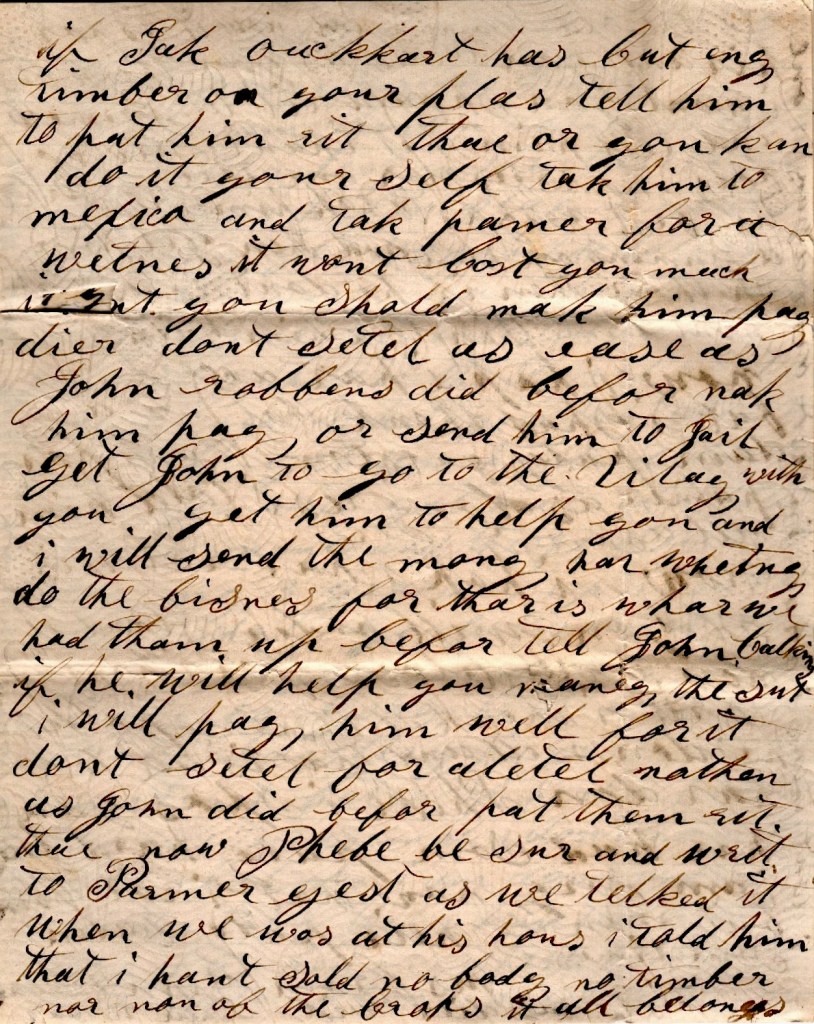 if Jak ouckkart has cut eny
timber on your plas tell him
to put him rit thue or you kan
do it your self tak him to
mexico and tak pamer for a
wetnes it wont cost you much
you shold mak him pay
dier dont setel as ease as
John robbens did befor mak
him pay or send him to Jail
Get John to go to the vilag with
you get him to help you and
i will send the mony har whetny
do the bisnes for thar is whar we
had tham up befor tell John Calkins
if he will help you maneg the sut
i will pay him well for it
dont setel for aletel nothen
as John did befor put them rit
thue now Phebe be sur and writ
to Parmer gest as we telked it
when we was at his hous i told him
that i hant sold no body no timber
nor non of the craps it all belongs